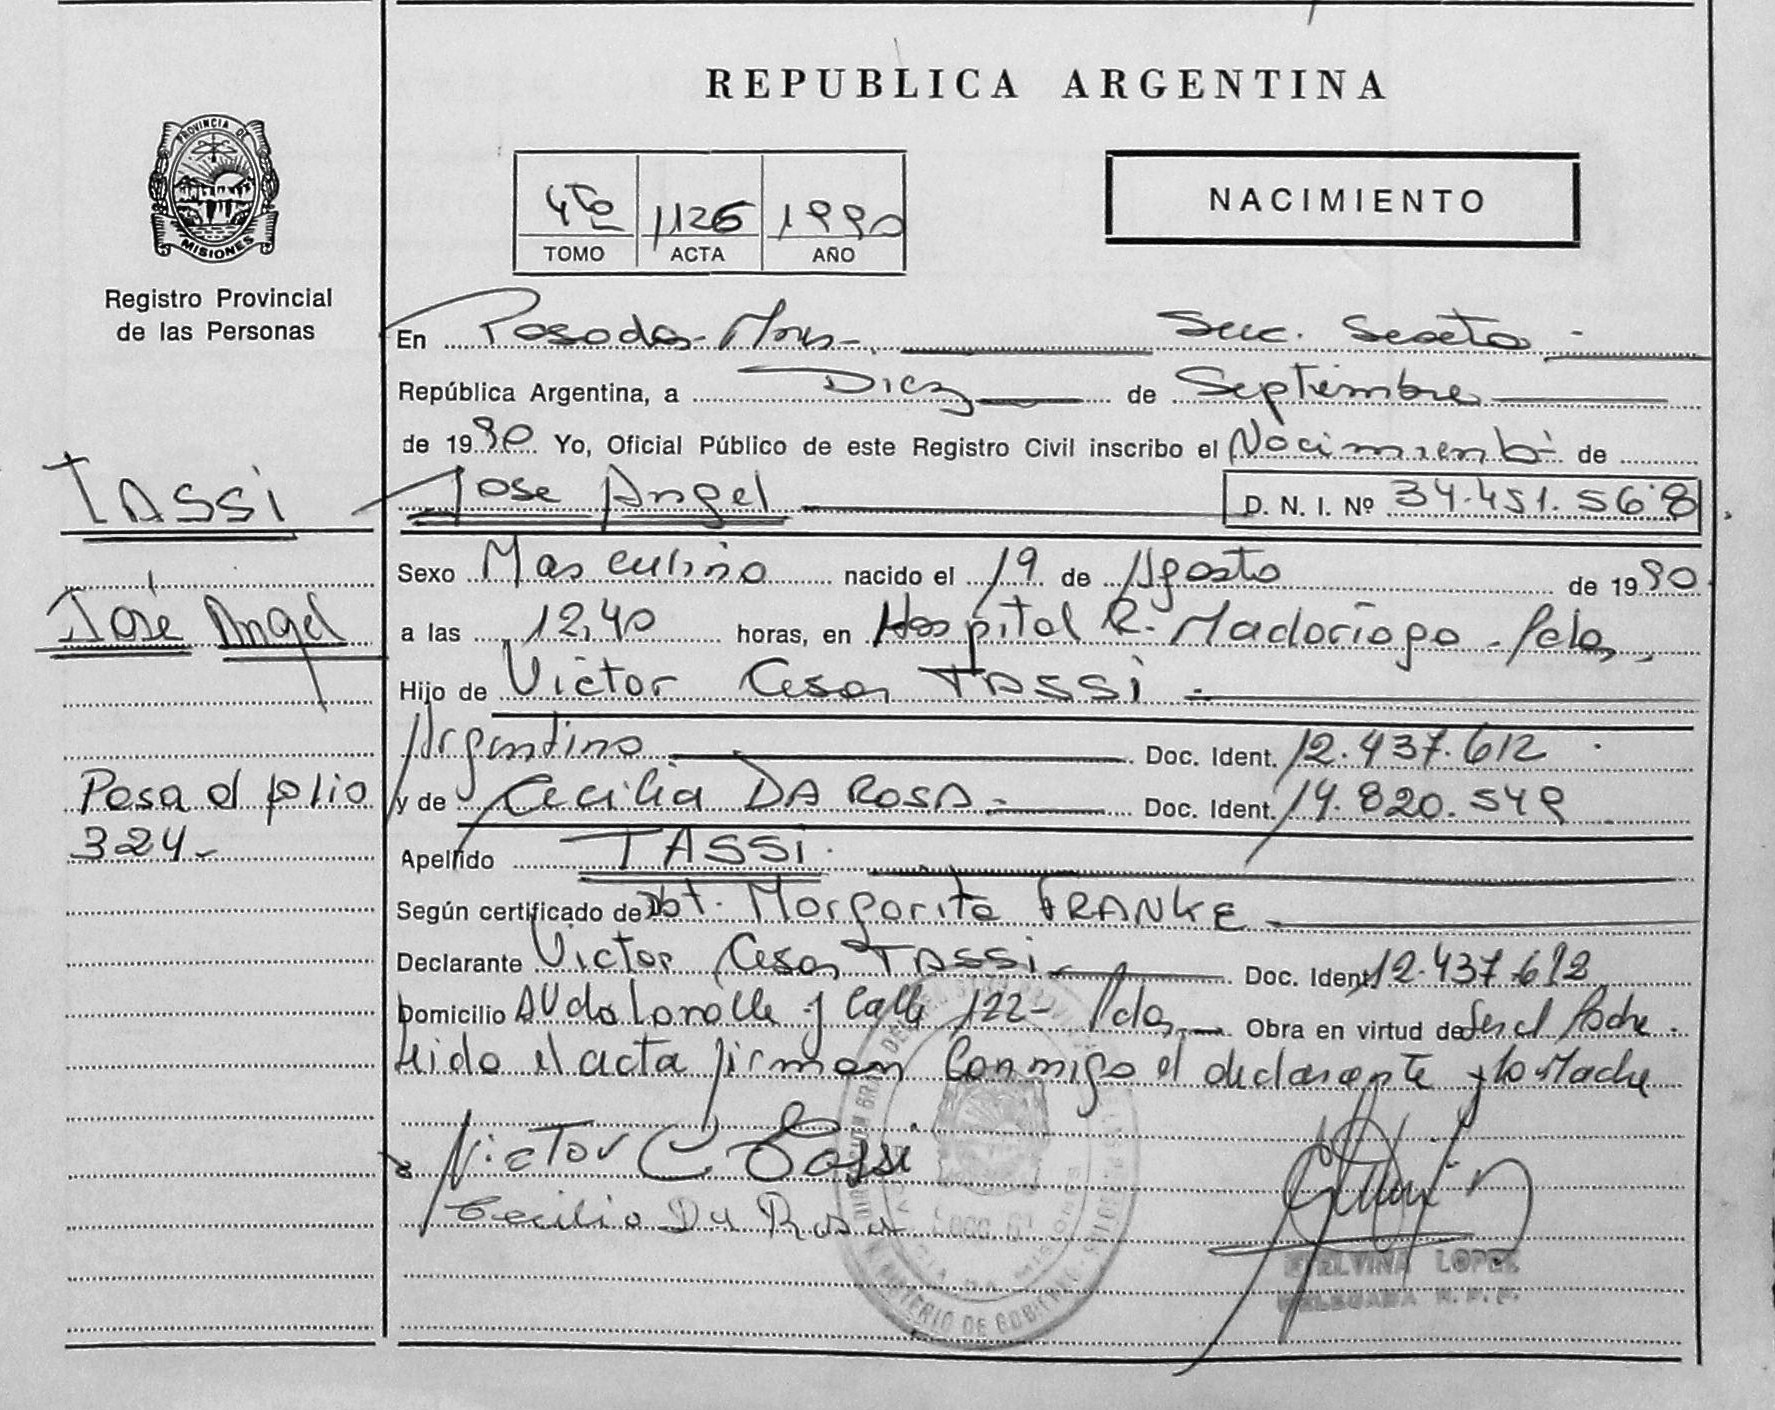 REPUBLICA ARGENTINA
PROVINCIA DE
MISIONES
Registro Provincial
de las Personas
4to 1126 1990
TOMO ACTA AÑO
NACIMIENTO
En Posadas - Mnes - Secc. Sexta -
República Argentina, a Diez de Septiembre
de 1990 Yo, Oficial Público de este Registro Civil inscribo el Nacimiento de
Jose Angel D. N. I. Nº 34.451.568
TASSi
José Angel
Sexo Masculino nacido el 19 de Agosto de 1990
a las 12,40 horas, en Hospital R. Madariaga - Pdas,
Hijo de Victor Cesar TASSi -
Argentino Doc. Ident. 12.437.612
y de Cecilia DA ROSA - Doc. Ident. 14.820.549
Pasa al folio
324 -
Apellido TASSi
Según certificado de Obt. Margarita FRANKE -
Declarante Victor Cesar TASSi - Doc. Ident 12.437.612
Domicilio AVda Lavalle y Calle 122 - Pdas, Obra en virtud de Ser el Padre.
Leida el acta firman Conmigo el declarante y la Madre
Victor C Tassi
Cecilia Da Rosa
MINISTERIO DE GOBIERNO
MISIONES
ETELVINA LOPEZ
DELEGADA R. P. P.